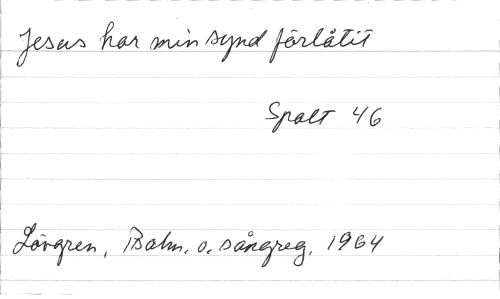 Jesus har min synd förlåtit
Spalt 46
Lövgren, Psalm. o. sångreg. 1964